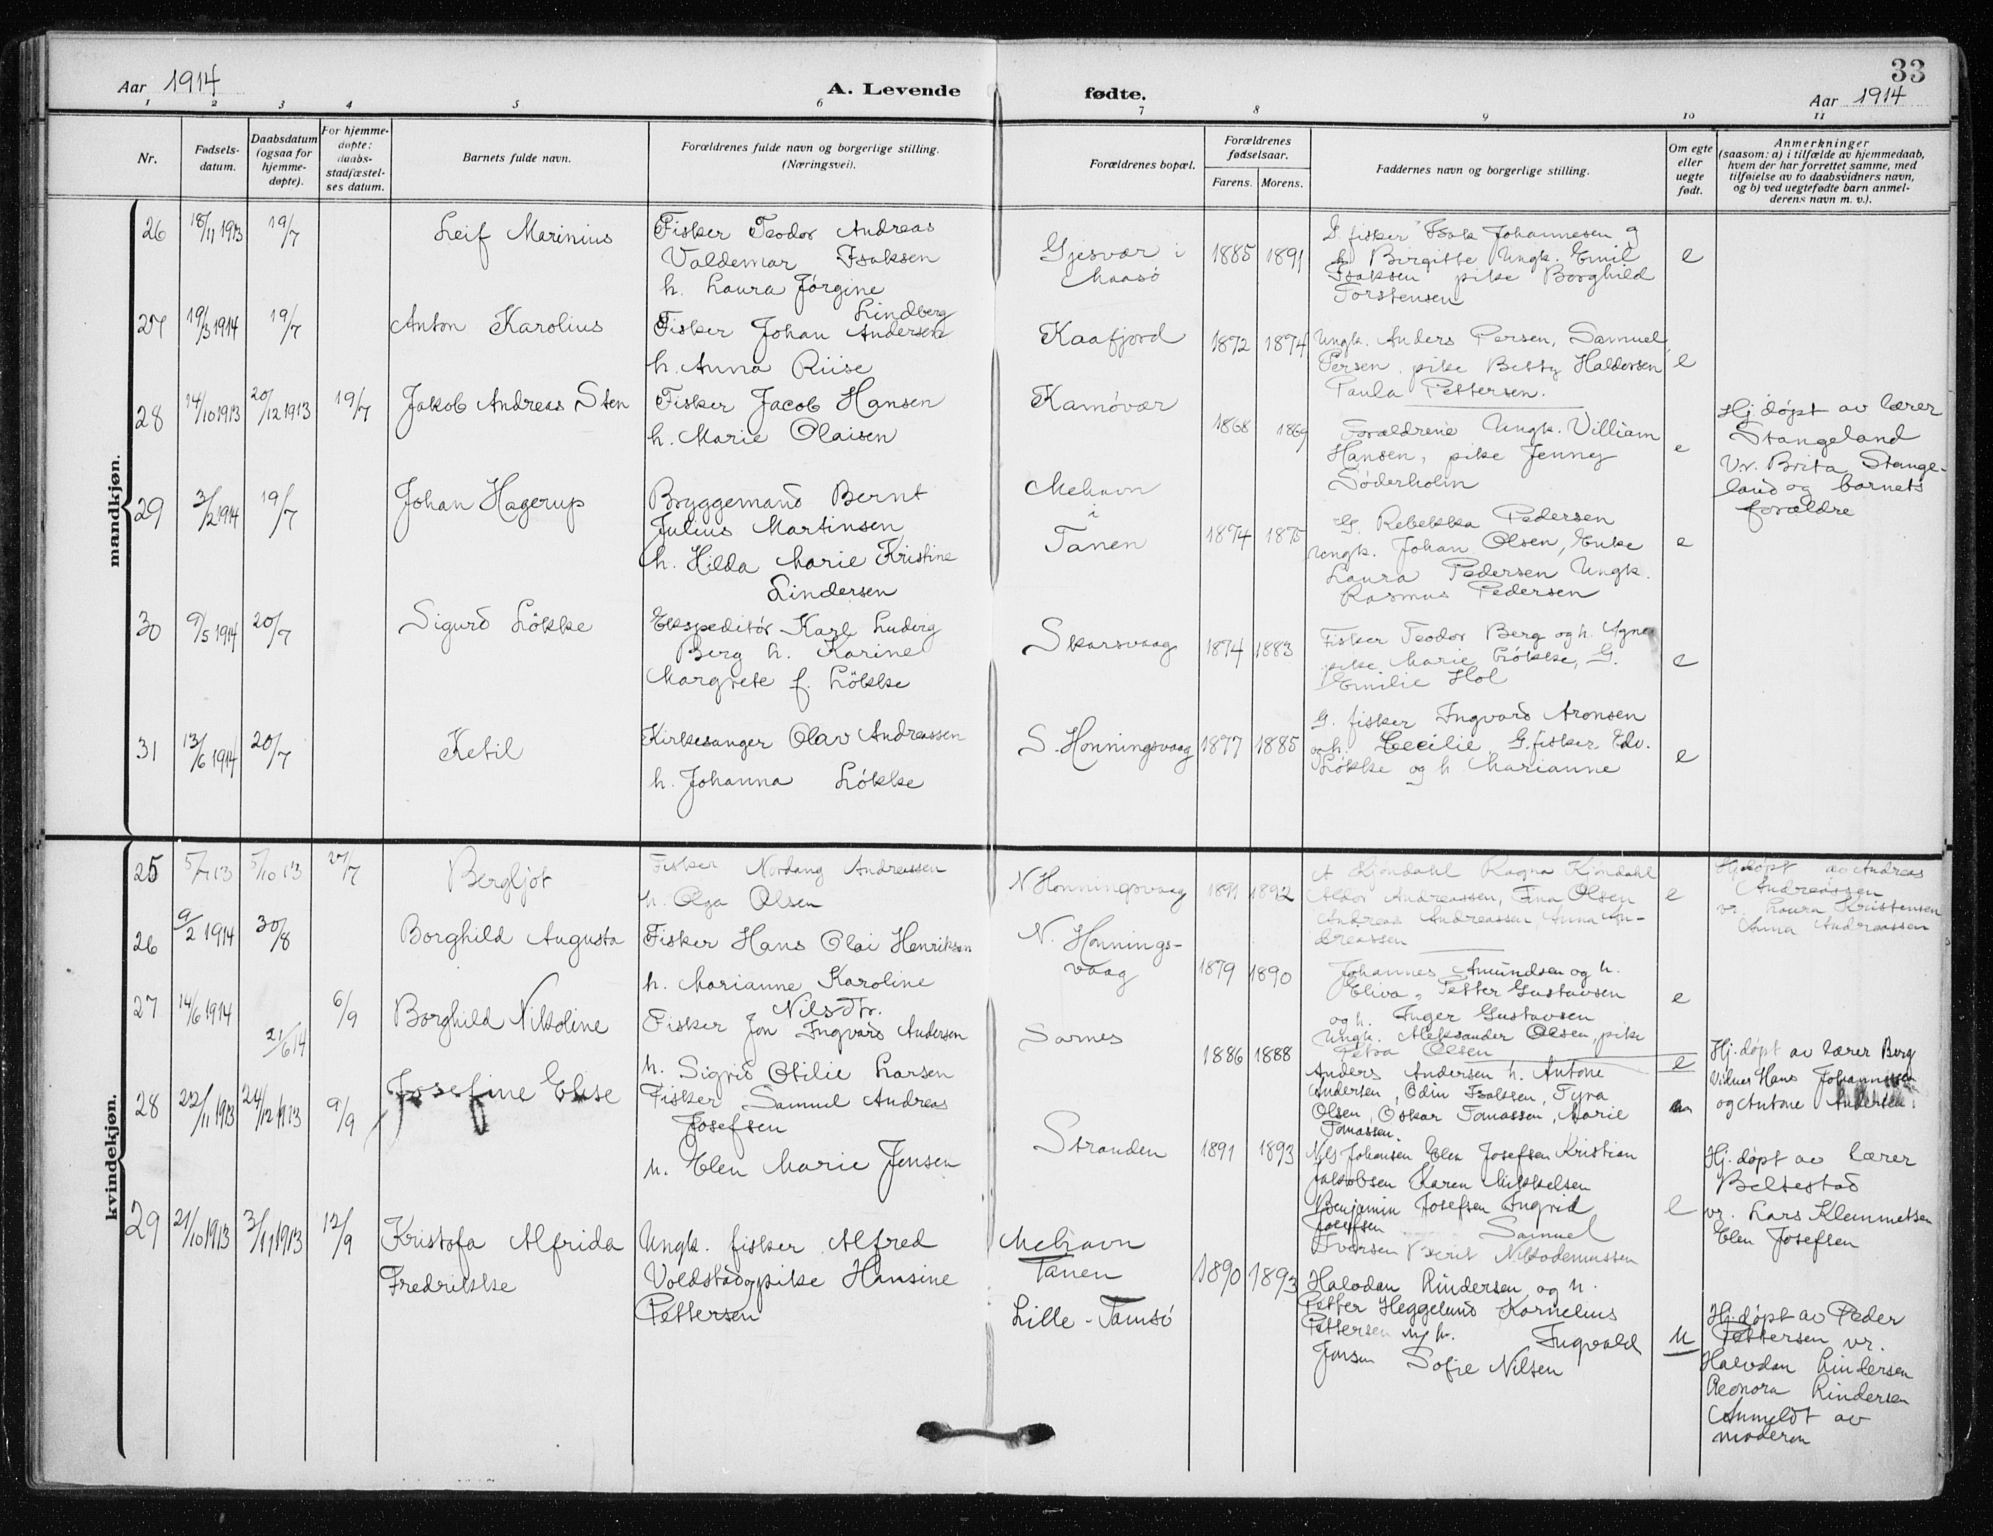 33
Aar 1914 A. Levende fødte. Aar 1914
1 2 3 4 5 6 7 8 9 10 11
Nr.
Fødsels-
datum.
Daabsdatum
(ogsaa for
hjemme-
døpte).
For hjemme-
døpte:
daabs-
stadfæstel-
ses datum.
Barnets fulde navn.
Forældrenes fulde navn og borgerlige stilling.
(Næringsvei).
Forældrenes bopæl.
Forældrenes
fødselsaar.
Farens. Morens.
Faddernes navn og borgerlige stilling.
Om egte
eller
uegte
født.
Anmerkninger
(saasom: a) i tilfælde av hjemmedaab,
hvem der har forrettet samme, med
tilføielse av to daabsvidners navn,
og b) ved uegtefødte barn anmel-
derens navn m. v.).
mandkjøn.
26 18/11 1913 19/7
Leif Marinius
Fisker Teodor Andreas
Valdemar Isaksen
h. Laura Jørgine
Lindberg
Gjesvær i
Maasø
1885 1891
G. fisker Isak Johannesen og
h. Birgitte Ungk. Emil
Isaksen pike Borghild
Torstensen
e
27 19/3 1914 19/7
Anton Karolius
Fisker Johan Andersen
h. Anna Riise
Kaafjord
1872 1874
Ungk. Anders Persen, Samuel
Persen, pike Betty Haldorsen
Paula Pettersen.
e
28 14/10 1913 20/12 1913 19/7
Jakob Andreas Sten
Fisker Jacob Hansen
h. Marie Olaisen
Kamøvær
1868 1869
Forældrene Ungk. Villiam
Hansen, pike Jenny
Söderholm
e
Hj.døpt av lærer
Stangeland
Vv. Brita Stange-
land og barnets
forældre
29 3/2 1914 19/7
Johan Hagerup
Bryggemand Bernt
Julius Martinsen
h. Hilda Marie Kristine
Lindersen
Mehavn
i
Tanen
1874 1875
G. Rebekka Pedersen
Ungk. Johan Olsen, Enke
Laura Pedersen Ungk.
Rasmus Pedersen
e
30 9/5 1914 20/7
Sigurd Løkke
Ekspeditør Karl Ludvig
Berg h. Karine
Margrete f. Løkke
Skarsvaag
1874 1883
Fisker Teodor Berg og h. Agne
pike Marie Løkke, G.
Emilie Hol
e
31 13/6 1914 20/7
Ketil
Kirkesanger Olav Andreassen
h. Johanna Løkke
S. Honningsvaag
1877 1885
G. fisker Ingvard Aronsen
og h. Cecilie G. fisker Edv.
Løkke og h Marianne
e
kvindekjøn.
25 5/7 13 5/10 13 27/7
Bergljot
Fisker Nordang Andreassen
h. Olga Olsen
N Honningsvaag
1891 1892
A Kjøndahl Ragna Kjøndahl
Aldor Andreassen, Fina Olsen
Andreas Andreassen Anna An-
dreassen
e
Hj.døpt av Andreas
Andreassen
v. Laura Kristensen
Anna Andreassen
26 9/2 1914 30/8
Borghild Augusta
Fisker Hans Olai Henriksen
h. Marianne Karoline
Nilsdtr.
N. Honnings-
vaag
1879 1890
Johannes Amundsen og h.
Eliva, Petter Gustavsen
og h. Inger Gustavsen
Ungk. Aleksander Olsen, pike
Petra Olsen
e
27 14/6 1914 21/6 14 6/9
Borghild Nikoline
Fisker Jon Ingvard Andersen
h. Sigrid Otilie Larsen
Sarnes
1886 1888
Anders Andersen h. Antone
Andersen, Odin Isaksen, Tyra
Olsen, Oskar Tomassen, Marie
Tomassen.
e
Hj.døpt av lærer Berg
Vidner Hans Johannesen
og Antone Andersen.
28 22/11 1913 24/12 1913 9/9
Josefine Elise
Fisker Samuel Andreas
Josefsen
h. Elen Marie Jensen
Stranden
1891 1893
Nils Johansen Elen Josefsen Kristian
Jakobsen Karen Mikkelsen
Benjamin Josefsen Ingrid
Josefsen Samuel
Iversen Berit Nikodemussen
e
Hj.døpt av lærer
Beltestad
vv. Lars Klemmetsen
Elen Josefsen
29 21/10 1913 3/11 1913 12/9
Kristofa Alfrida
Fredrikke
Ungk. fisker Alfred
Voldstad og pike Hansine
Pettersen
Mehavn
Tanen
Lille-Tamsø
1890 1893
Halvdan Rindersen og h.
Petter Heggelund Kornelius
Pettersen Ingvald
Jensen Sofie Nilsen
u
Hj.døpt av Peder
Pettersen vv.
Halvdan Rindersen
Leonora Rindersen
Anmeldt av
moderen